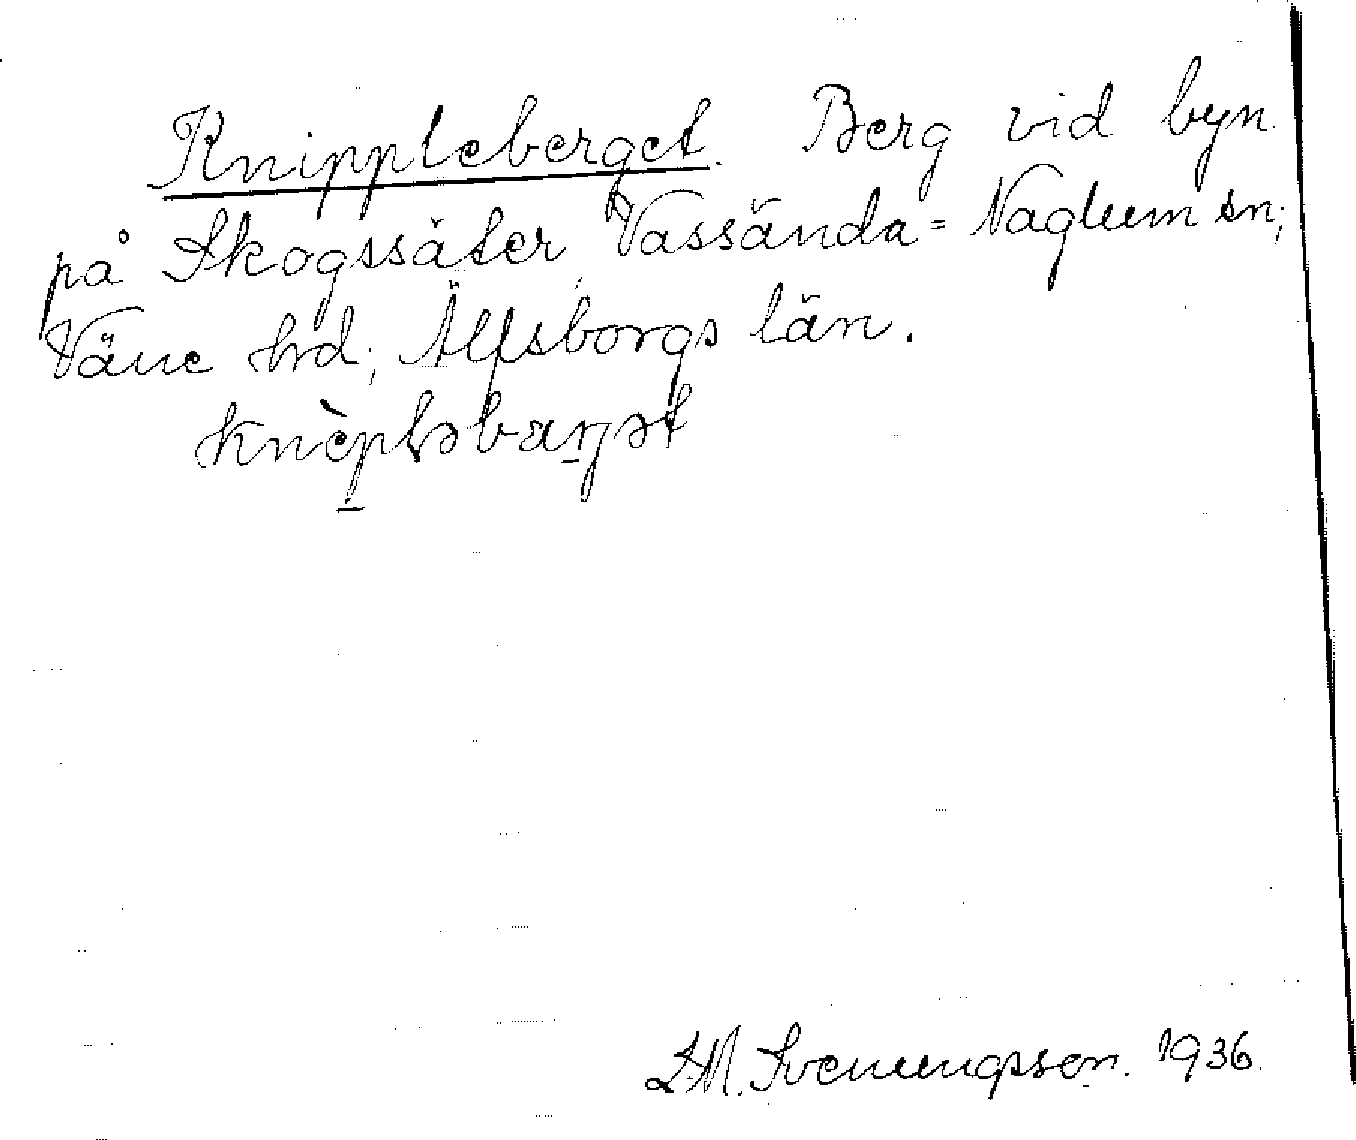 Knippleberget. Berg vid byn
på Skogssäter, Vassända-Naglum sn;
Väne hrd; Älfsborgs län.
knèpləbarjət
M. Svenungsson. 1936.